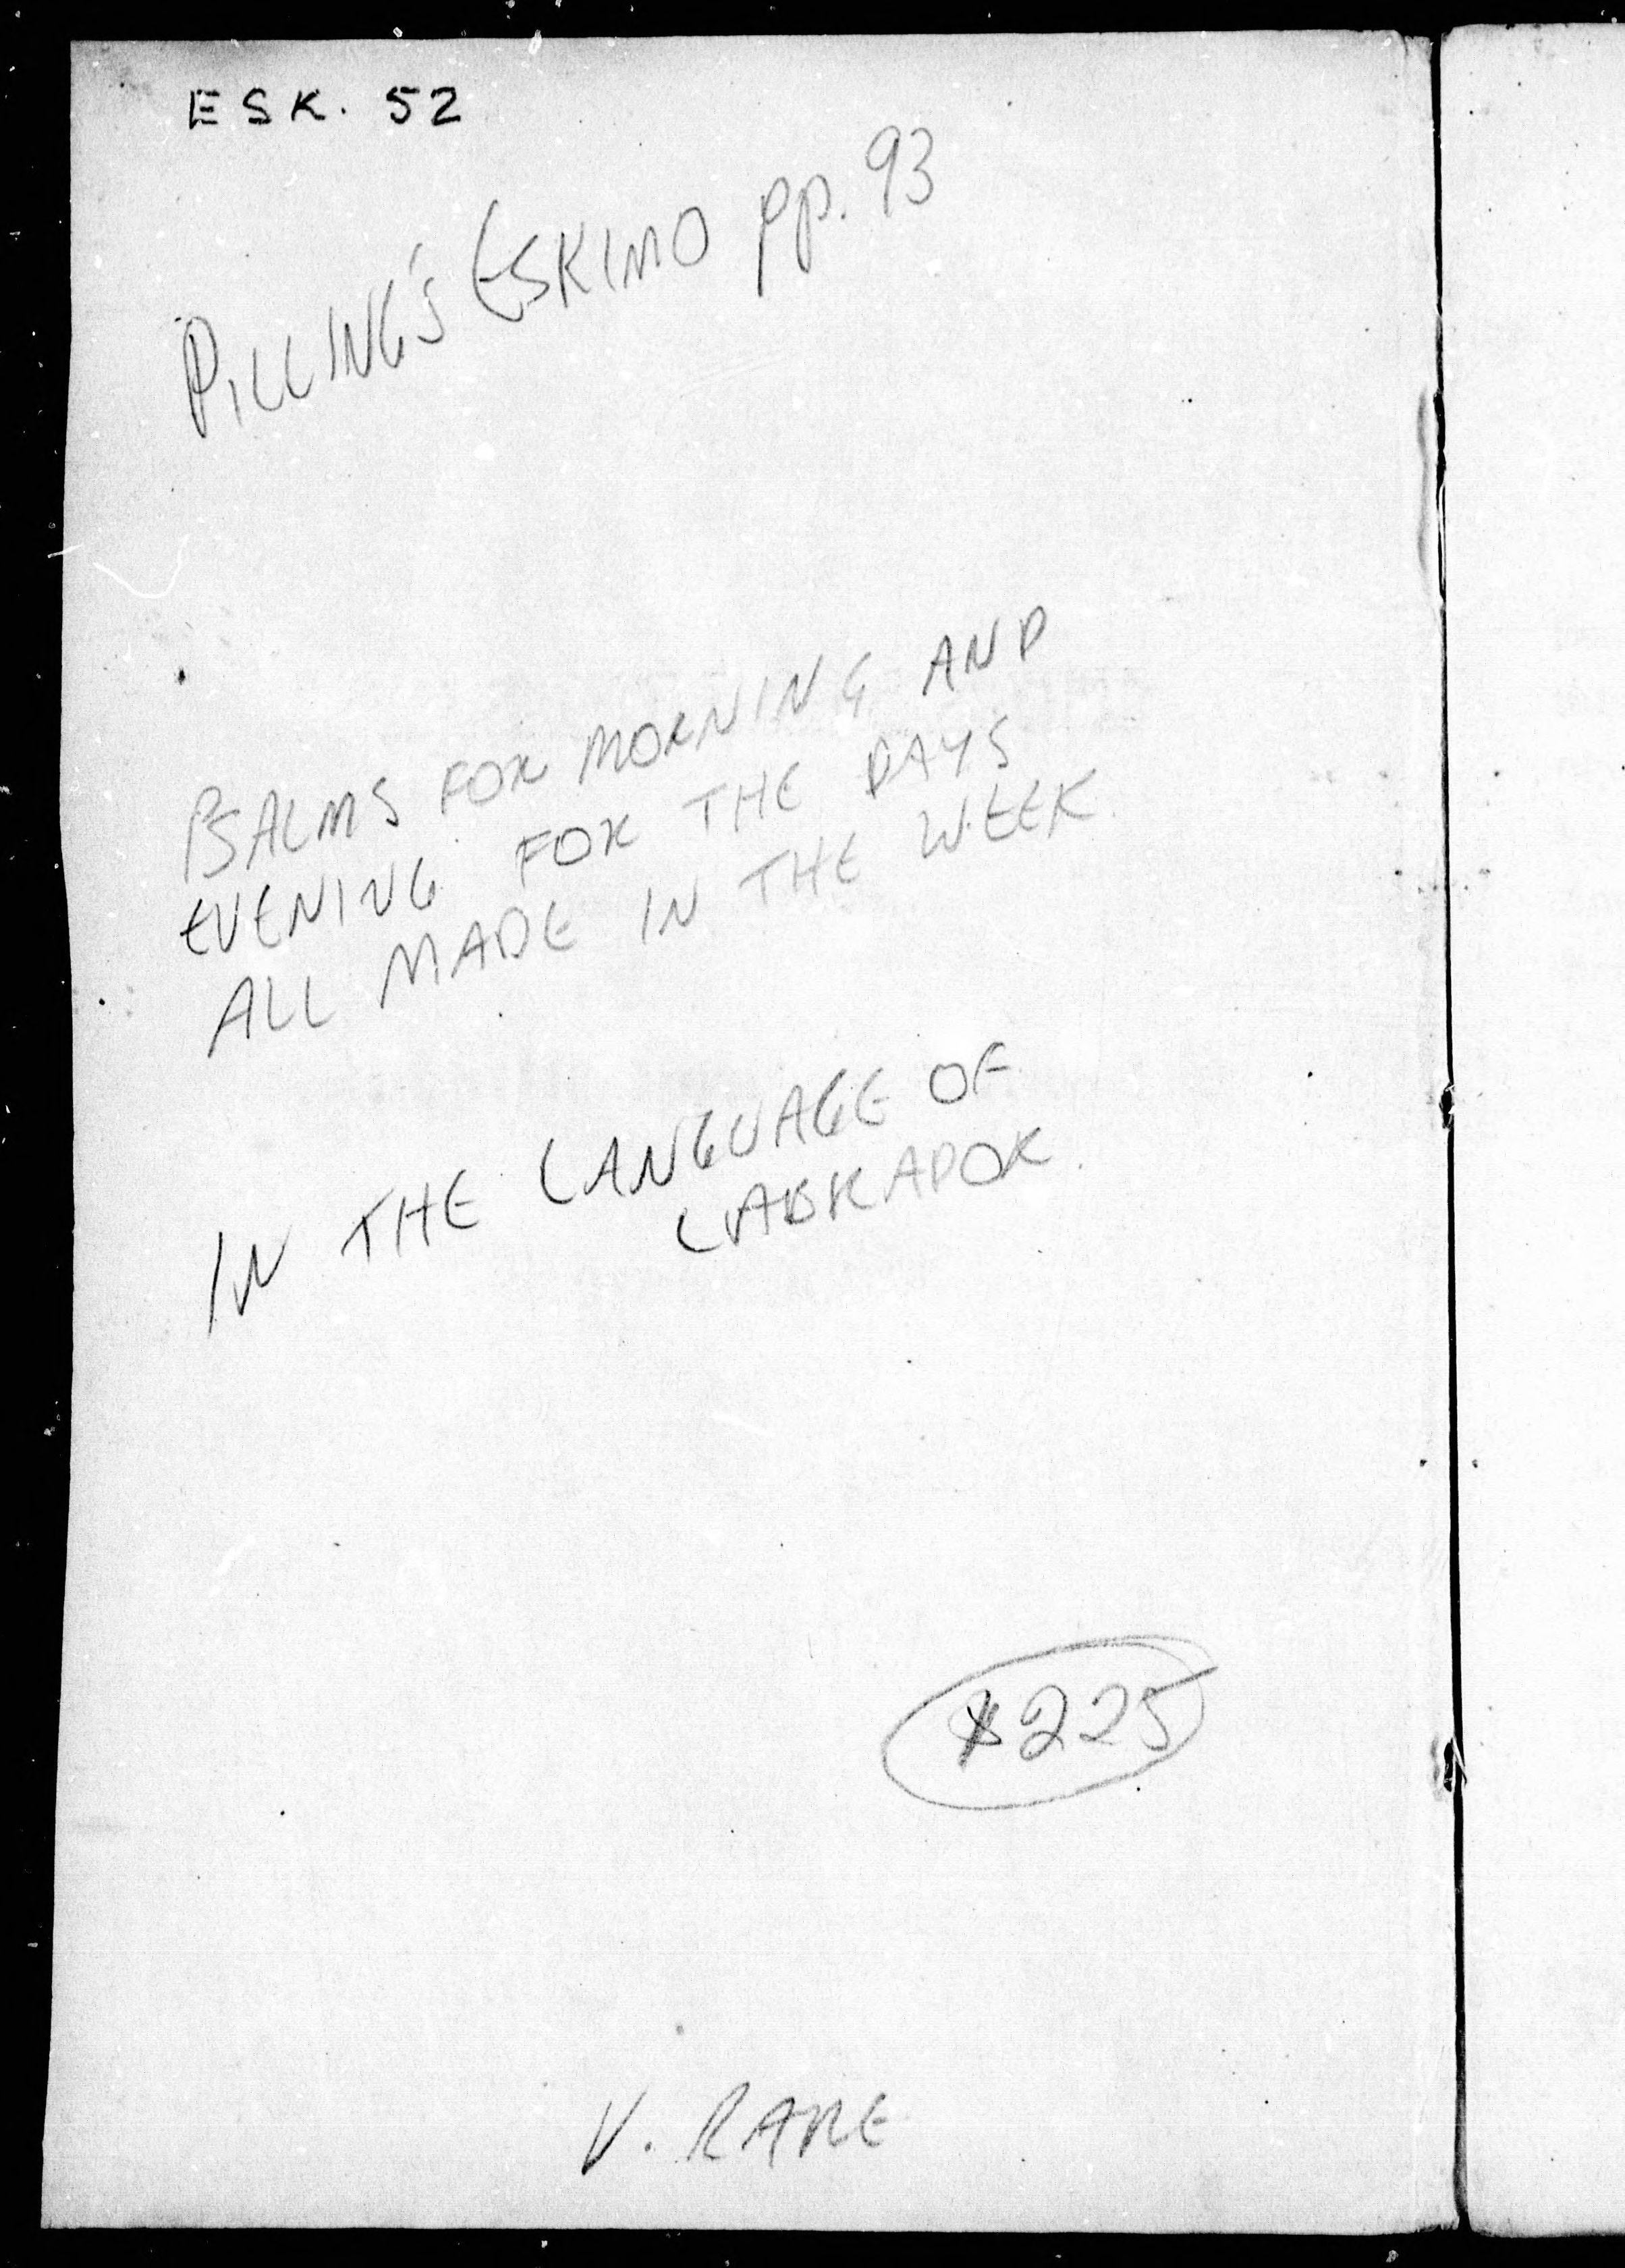 ESK. 52
PILLING'S ESKIMO pp. 93
PSALMS FOR MORNING AND
EVENING FOR THE DAYS
ALL MADE IN THE WEEK.
IN THE LANGUAGE OF
LABRADOR.
$225
V. RARE